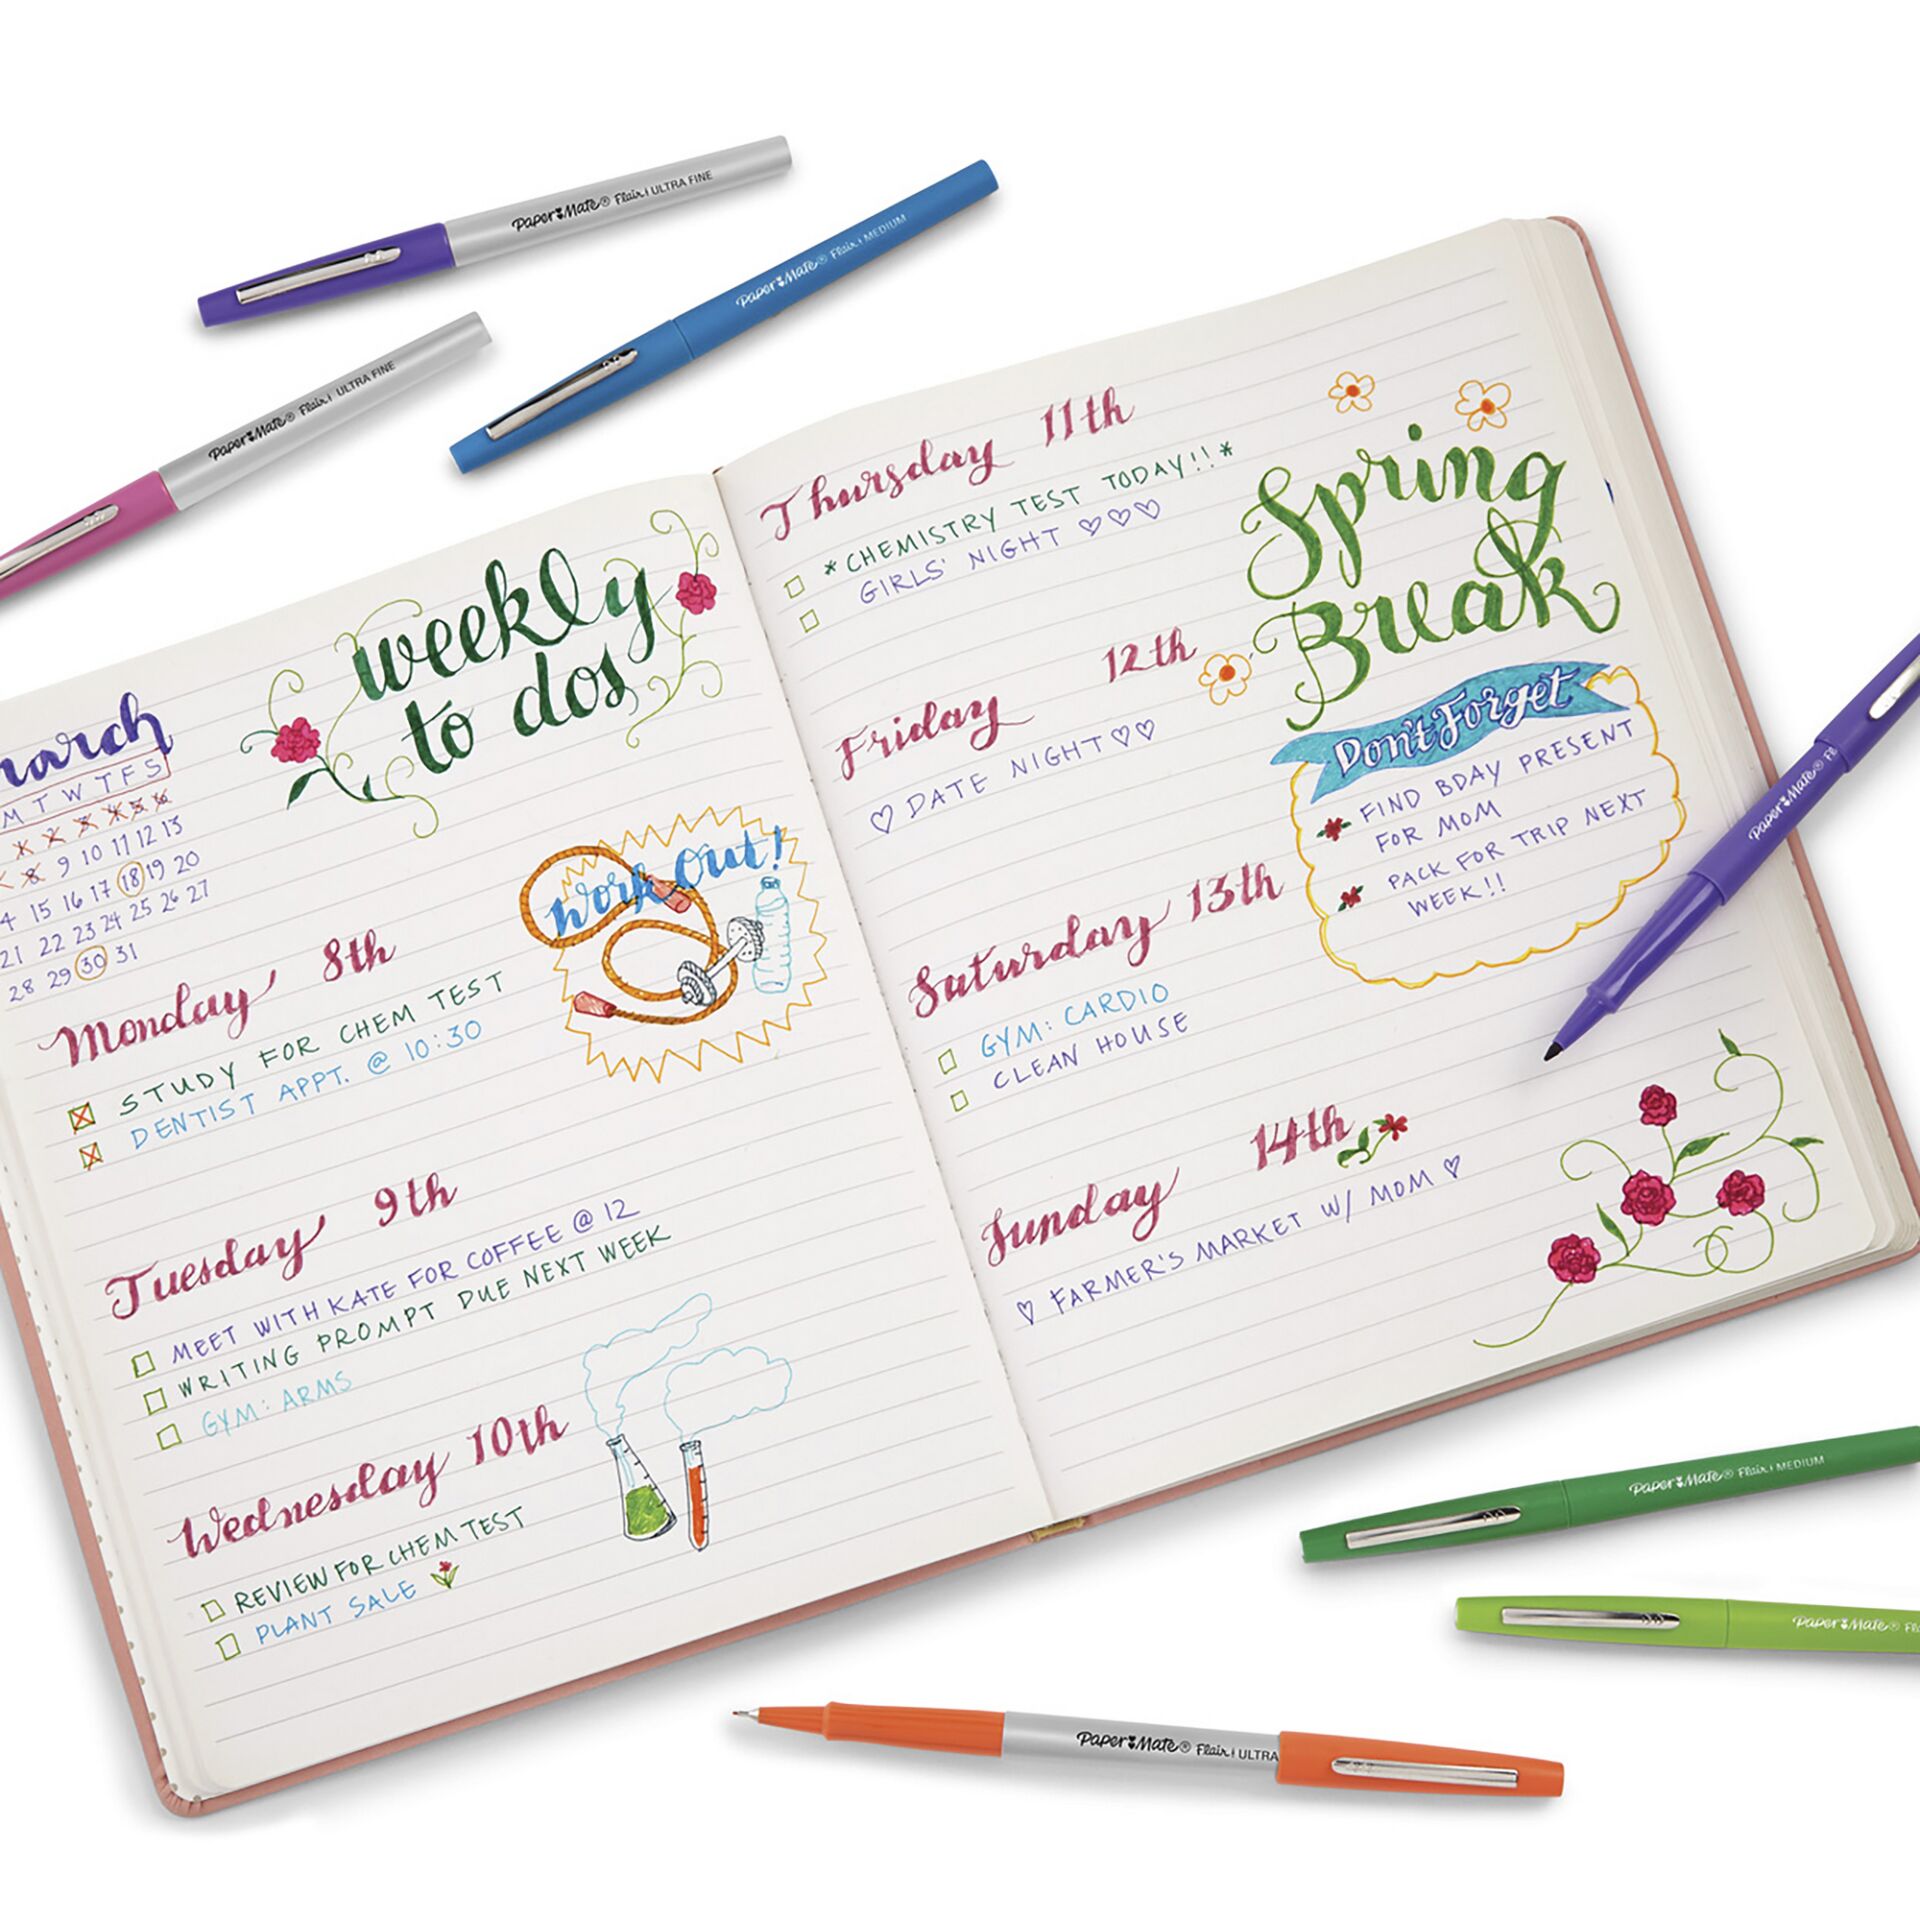 Paper Mate® Flair ULTRA FINE
Paper Mate® Flair MEDIUM
Paper Mate® Flair ULTRA FINE
weekly
to dos
M T W T F S
1 2 3 4 5 6
8 9 10 11 12 13
15 16 17 18 19 20
21 22 23 24 25 26 27
28 29 30 31
Work Out!
Monday 8th
STUDY FOR CHEM TEST
DENTIST APPT. @ 10:30
Tuesday 9th
MEET WITH KATE FOR COFFEE @ 12
WRITING PROMPT DUE NEXT WEEK
GYM: ARMS
Wednesday 10th
REVIEW FOR CHEM TEST
PLANT SALE
Thursday 11th
*CHEMISTRY TEST TODAY!!*
GIRLS' NIGHT ♡♡♡
Friday 12th
♡ DATE NIGHT ♡♡
Saturday 13th
GYM: CARDIO
CLEAN HOUSE
Sunday 14th
♡ FARMER'S MARKET W/ MOM ♡
Spring
Break
Don't Forget
FIND BDAY PRESENT
FOR MOM
PACK FOR TRIP NEXT
WEEK!!
Paper Mate®
Paper Mate® Flair MEDIUM
Paper Mate®
Paper Mate® Flair ULTRA